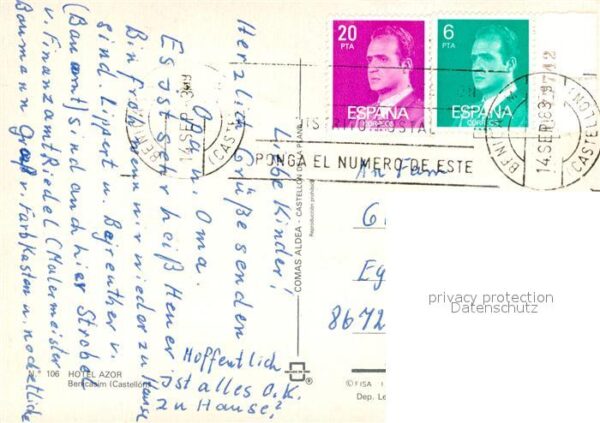 20
PTA
ESPAÑA
CORREOS
6
PTA
ESPAÑA
BENICASIM
14.SEP.83
(CASTELLON)
DISTRITO POSTAL
PONGA EL NUMERO DE ESTE
BENICASIM
14.SEP.83
(CASTELLON)
9742
Liebe Kinder!
Herzliche Grüße senden
Oda u. Oma.
Es ist sehr heiß Heuer
Bin froh wenn wir wieder zu Hause
sind. Lippert u. Bayreuther v.
(Bauamt) sind auch hier Strobel
v. Finanzamt Riedel (Malermeister
Baumann Groß v. Farbkasten u. noch etliche
Hoffentlich
ist alles O.K.
zu Hause?
An Fam
G
Eg
8672
COMAS ALDEA - CASTELLON DE LA PLANA
Reproducción prohibida
N.º 106 HOTEL AZOR
Benicasim (Castellón)
© FISA I
Dep. Le
privacy protection
Datenschutz